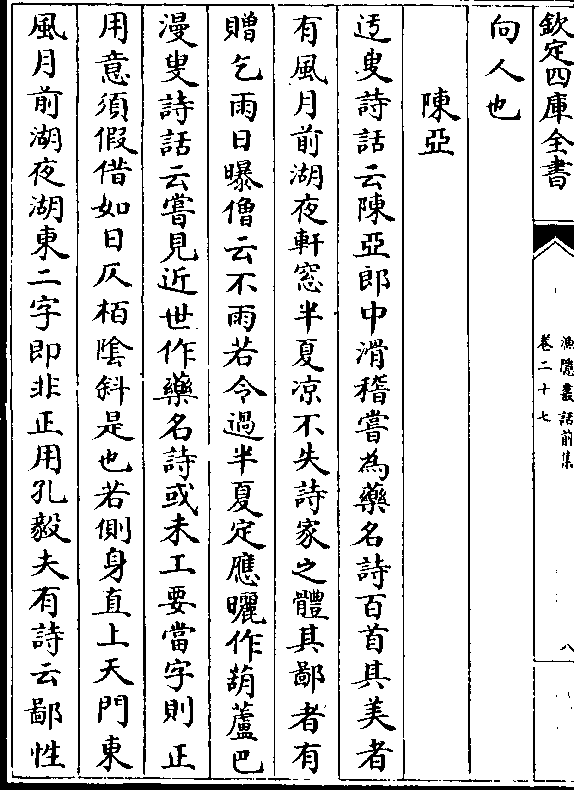 欽定四庫全書
漁隱叢話前集
卷二十七
八
向人也
陳亞
迃叟詩話云陳亞郎中滑稽嘗為藥名詩百首其美者
有風月前湖夜軒窓半夏凉不失詩家之體其鄙者有
贈乞雨日曝僧云不雨若令過半夏定應曬作葫蘆巴
漫叟詩話云嘗見近世作藥名詩或未工要當字則正
用意須假借如日仄栢陰斜是也若側身直上天門東
風月前湖夜湖東二字即非正用孔毅夫有詩云鄙性